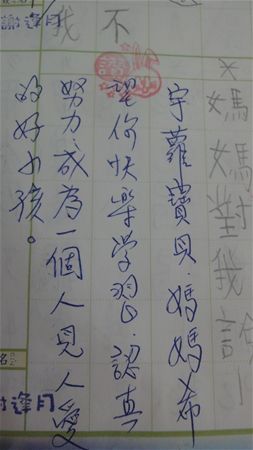 謝逢月
我不
媽媽對我說
宇蘿寶貝，媽媽希
望你快樂学習、認真
努力，成為一個人見人愛
的好小孩。
逢月